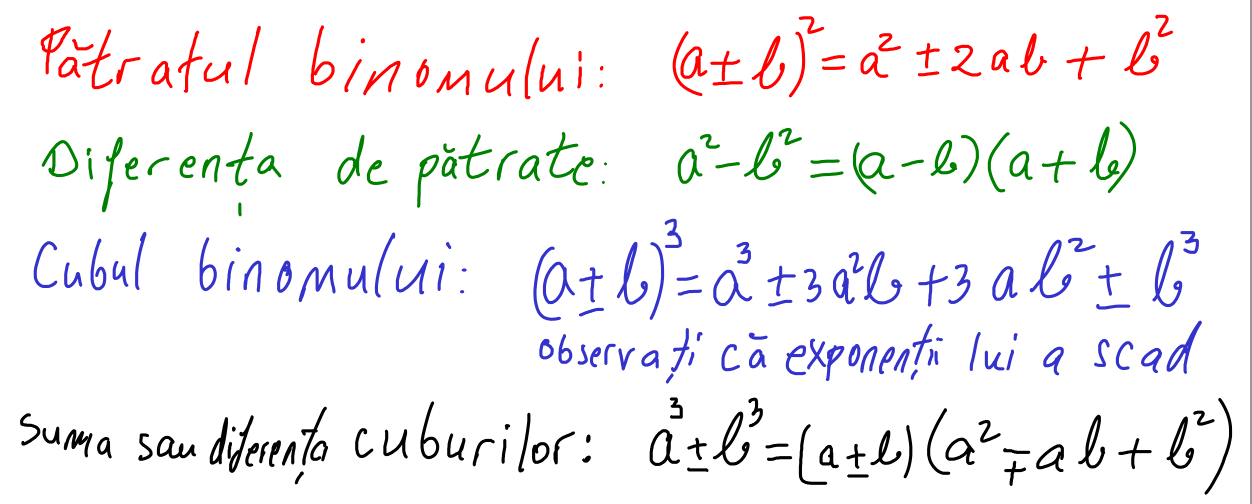 Pătratul binomului: (a±b)²=a²±2ab+b²
Diferența de pătrate: a²-b²=(a-b)(a+b)
Cubul binomului: (a±b)³=a³±3a²b+3ab²±b³
observați că exponenții lui a scad
Suma sau diferența cuburilor: a³±b³=(a±b)(a²∓ab+b²)